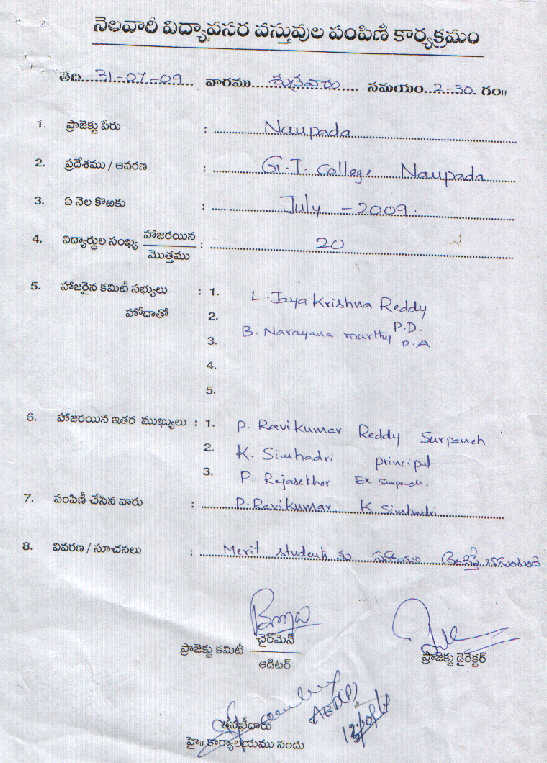 నెలవారీ విద్యావసర వస్తువుల పంపిణీ కార్యక్రమం
తేది. 31-07-09 వారము. శుక్రవారం సమయం. 2-30. గం॥
1. ప్రాజెక్టు పేరు : Naupada
2. ప్రదేశము / ఆవరణ : G.J. College Naupada
3. ఏ నెల కొఱకు : July - 2009.
4. విద్యార్థుల సంఖ్య హాజరయిన / మొత్తము : 20
5. హాజరైన కమిటీ సభ్యులు : 1. L. Jaya Krishna Reddy P.D.
హోదాతో 2. B. Narayana murthy P.A
3.
4.
5.
6. హాజరయిన ఇతర ముఖ్యులు : 1. P. Ravikumar Reddy Surpanch
2. K. Simhadri principal
3. P. Rajasekhar Ex Surpanch.
7. పంపిణీ చేసిన వారు : P. Ravikumar K Simhadri
8. వివరణ / సూచనలు : Merit students కు
ప్రాజెక్టు కమిటీ ఛైర్‌మన్
ఆడిటర్
ప్రాజెక్టు డైరెక్టర్
కార్యాలయము నందు